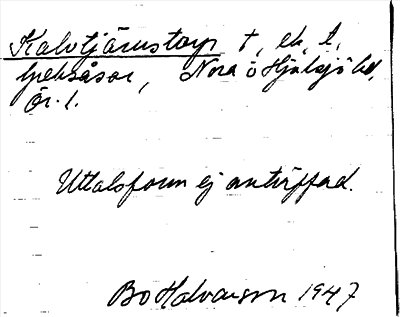 Kalvtjärnstorp t, ek, l,
Grecksåsar, Nora o Hjulsjö bd,
Ör. l.
Uttalsform ej anträffad.
Bo Halvarson 1947